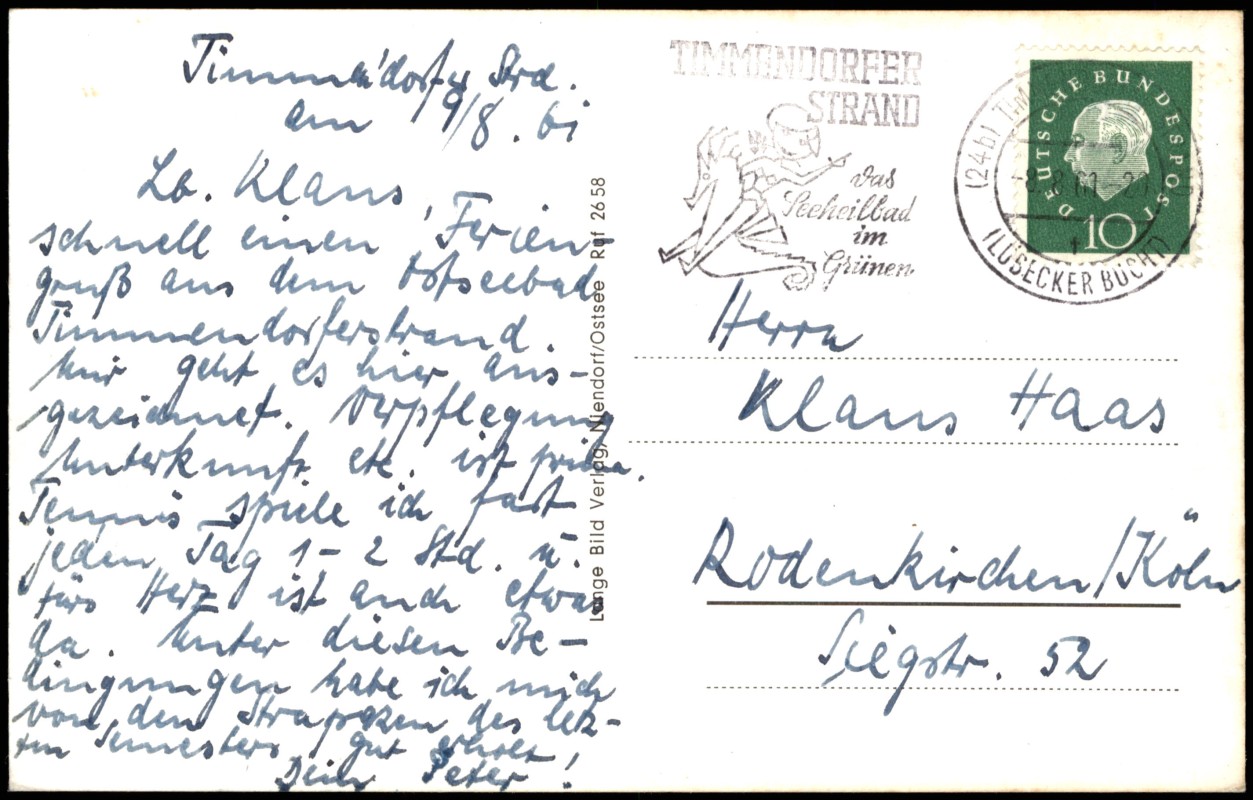 Timmend'dorfer Strd.
am 9/8. 61
Lb. Klaus,
schnell einen Ferien-
gruß aus dem Ostseebad
Timmendorferstrand.
Mir geht es hier aus-
gezeichnet. Verpflegung
Unterkunft etc. ist prima.
Tennis spiele ich fast
jeden Tag 1-2 Std. u.
fürs Herz ist auch etwas
da. Unter diesen Be-
dingungen habe ich mich
von den Strapazen des letz-
ten Semesters gut erholt!
Dein Peter!
Lange Bild Verlag, Niendorf/Ostsee Raf 2658
TIMMENDORFER
STRAND
das
Seeheilbad
im
Grünen
(24b) TIM
-8.8.61
(LÜBECKER BUCHT)
DEUTSCHE BUNDESPOST
10
Herrn
Klaus Haas
Rodenkirchen/Köln
Siegstr. 52